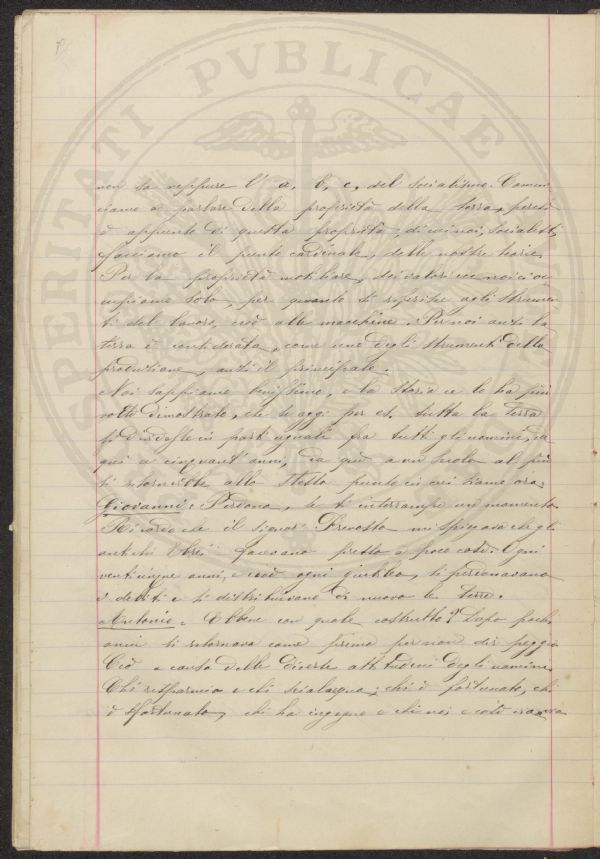 PROSPERITATI PVBLICAE
non sa neppure l' a, b, c, del socialismo. Comin
ciamo a parlare della proprietà della terra, perchè
è appunto di questa proprietà, di cui noi, socialisti
facciamo il punto cardinale, delle nostre teorie.
Per la proprietà mobiliare, dei valori ecc noi ci oc
cupiamo solo, per quanto si riferisce agli strumen
ti del lavoro, cioè alle macchine. Per noi anzi la
terra è considerata, come uno degli strumenti della
produzione, anzi il principale.
Noi sappiamo benissimo, e la storia ce lo ha più
volte dimostrato, che se oggi per es. tutta la terra
si dividesse in parti uguali fra tutti gli uomini, da
qui a cinquant' anni, da qui a un secolo al più
si ritornerebbe allo stesso punto in cui siamo ora.
Giovanni = Perdona, se ti interrompo un momento.
Ricordo che il Signor Prevosto mi spiegava che gli
antichi Ebrei facevano presso a poco così. Ogni
venticinque anni, e cioè ogni giubileo, si perdonavano
i debiti e si distribuivano di nuovo le terre.
Antonio = Ebbene con quale costrutto? Dopo pochi
anni si ritornava come prima per non dir peggio
Ciò a causa delle diverse attitudini degli uomini.
Chi risparmia e chi scialacqua; chi è fortunato, chi
è sfortunato, chi ha ingegno e chi no; e così via via